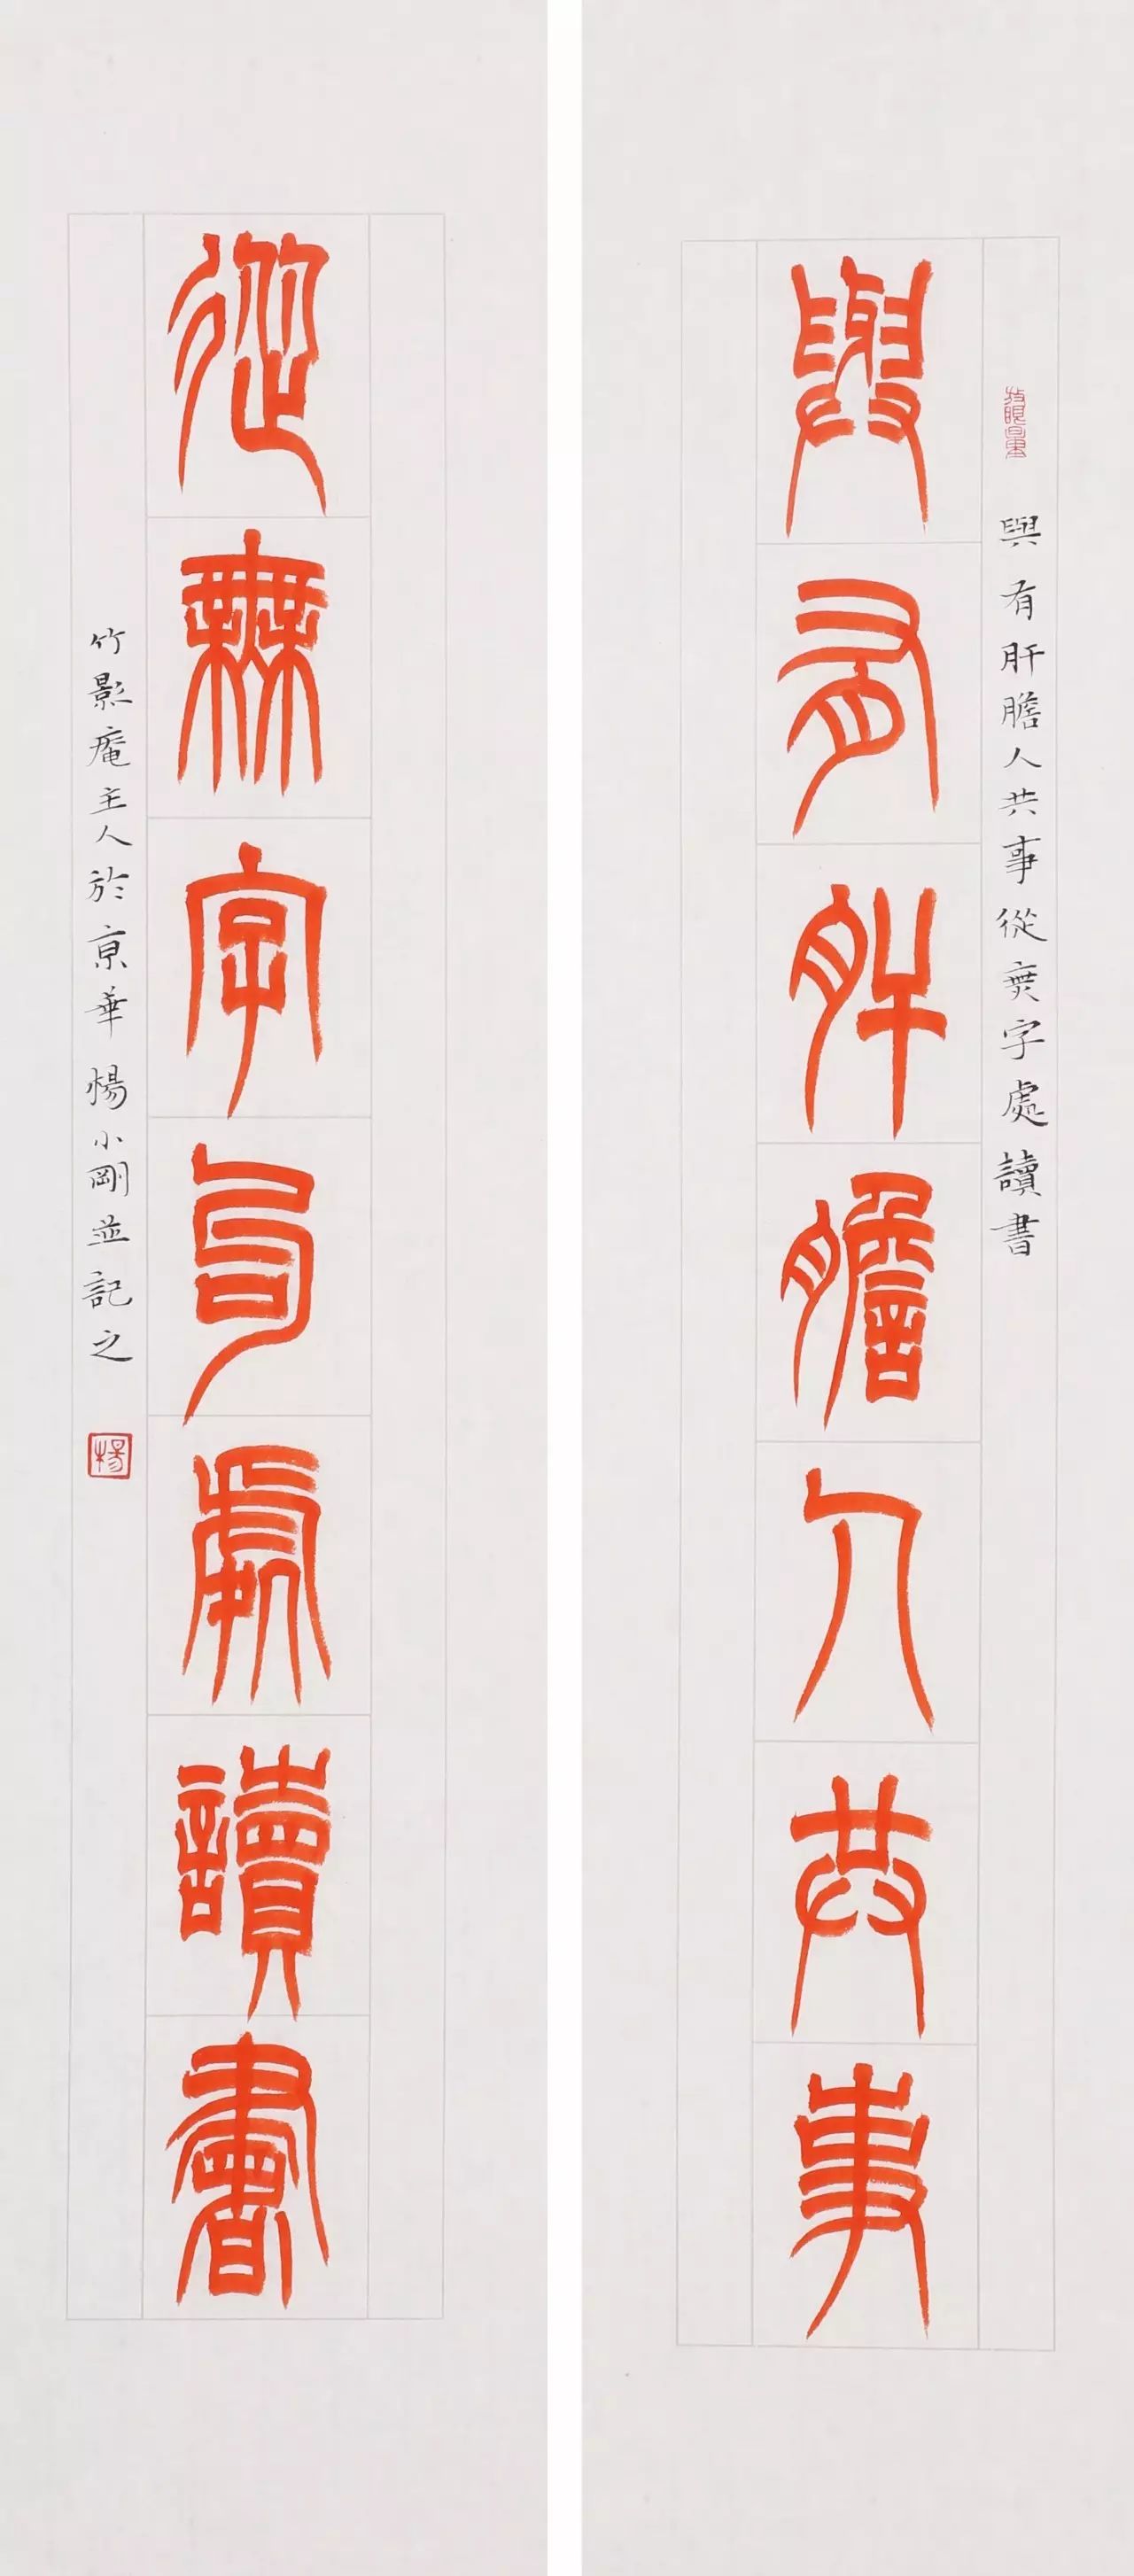 放眼量
與有肝膽人共事從無字處讀書
與有肝膽人共事
從無字句處讀書
竹影庵主人於京華楊小剛並記之
楊